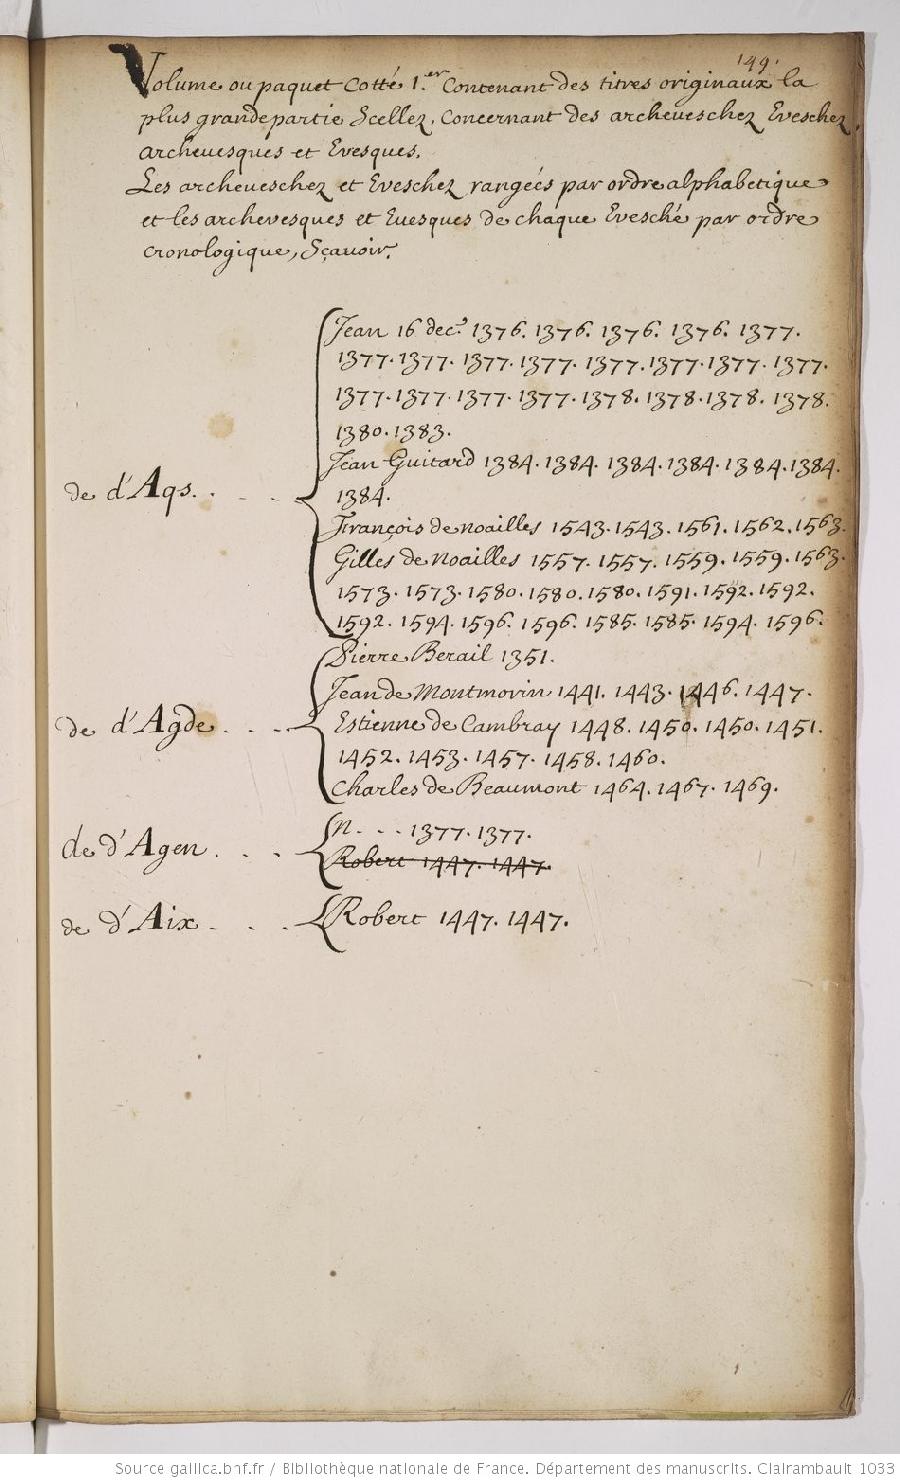 149.
Volume ou paquet Cotté 1.er Contenant des titres originaux la
plus grande partie Scellez, Concernant des archeueschez Eveschez,
archeuesques et Evesques.
Les archeueschez et Eveschez rangées par ordre alphabetique
et les archevesques et Euesques de chaque Evesché par ordre
cronologique, Sçauoir,
Jean 16 dec.e 1376. 1376. 1376. 1376. 1377.
1377. 1377. 1377. 1377. 1377. 1377. 1377. 1377.
1377. 1377. 1377. 1377. 1378. 1378. 1378. 1378.
1380. 1383.
Jean Guitard 1384. 1384. 1384. 1384. 1384. 1384.
de d'Aqs. . . . 1384.
François de noailles 1543. 1543. 1561. 1562. 1563.
Gilles de Noailles 1557. 1557. 1559. 1559. 1563.
1573. 1573. 1580. 1580. 1580. 1591. 1592. 1592.
1592. 1594. 1596. 1596. 1585. 1585. 1594. 1596.
Pierre Berail 1351.
Jean de Montmorin 1441. 1443. 1446. 1447.
de d'Agde . . . Estienne de Cambray 1448. 1450. 1450. 1451.
1452. 1453. 1457. 1458. 1460.
Charles de Beaumont 1464. 1467. 1469.
de d'Agen . . . N. . . . 1377. 1377.
Robert 1447. 1447.
de d'Aix . . . Robert 1447. 1447.
Source gallica.bnf.fr / Bibliothèque nationale de France. Département des manuscrits. Clairambault 1033